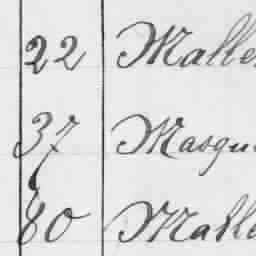 22 Malle
37 Masqu
80 Malle